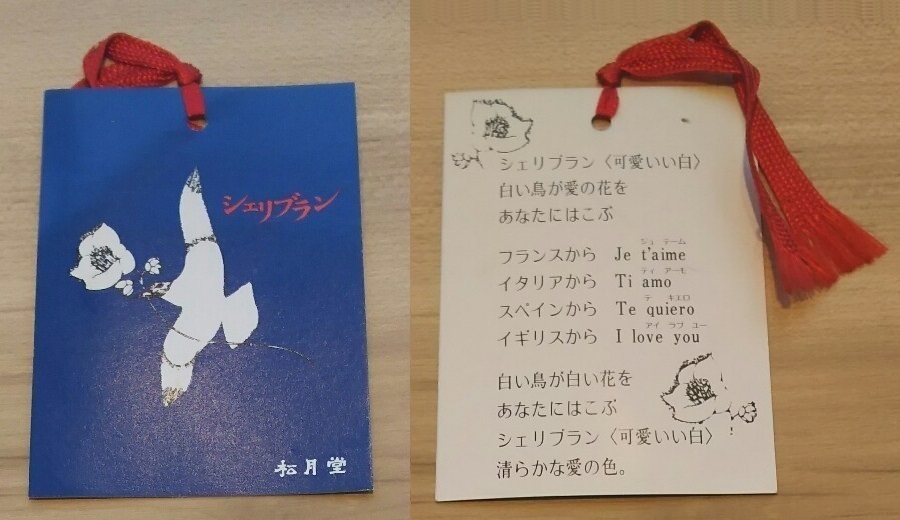 シェリブラン
松月堂
シェリブラン〈可愛いい白〉
白い鳥が愛の花を
あなたにはこぶ
ジュ テーム
フランスから Je t'aime
ティ アーモ
イタリアから Ti amo
テ キエロ
スペインから Te quiero
アイ ラブ ユー
イギリスから I love you
白い鳥が白い花を
あなたにはこぶ
シェリブラン〈可愛いい白〉
清らかな愛の色。